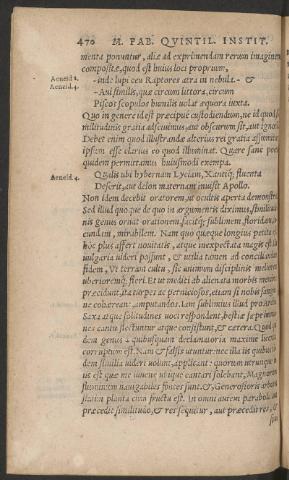 470 M. FAB. QVINTIL. INSTIT.
menta ponuntur, aliæ ad exprimendam rerum imaginem
compositæ, quod est huius loci proprium,
Aeneid. 2. -inde lupi ceu Raptores atra in nebula. - &
Aeneid. 4. -Aui similis, quæ circum littora, circum
Piscosos scopulos humilis uolat æquora iuxta.
Quo in genere id est præcipue custodiendum, ne id quod
similitudinis gratia adsciuimus, aut obscurum sit, aut ignotum
Debet enim quod illustrandæ alterius rei gratia assumitur
ipsum esse clarius eo quod illuminat. Quare sane poetis
quidem permittamus huiusmodi exempla.
Aeneid. 4. Qualis ubi hybernam Lyciam, Xanthique fluenta
Deserit, aut delon maternam inuisit Apollo.
Non idem decebit oratorem, ut occultis aperta demonstret
Sed illud quoque de quo in argumentis diximus, similitudinis
genus ornat orationem, facitque sublimem, floridam,
cundam, mirabilem. Nam quo quæque longius petita
hoc plus affert nouitatis, atque inexpectata magis est
uulgaria uideri possunt, & utilia tamen ad conciliandam
fidem, Vt terram cultu, sic animum disciplinis meliorem
uberioremque fieri. Et ut medici ab alienata morbis membra
præcidunt, ita turpes ac perniciosos, etiam si nobis sanguine
cohæreant, amputandos. Iam sublimius illud pro Archia
Saxa atque solitudines uoci respondent, bestiæ sæpe
cantu flectuntur atque consistunt, & cætera. Quod
dem genus a quibusdam declamatoria maxime licentia
corruptum est. Nam & falsis utuntur: nec illa iis quibus
dem similia uideri uolunt, applicant: quorum utrunque in
iis est quæ me iuuene ubique cantari solebant, Magnorum
fluminum nauigabiles fontes sunt. &, Generosioris arboris
statim planta cum fructu est. In omni autem parabola aut
præcedit similitudo, & res sequitur, aut præcedit res, &